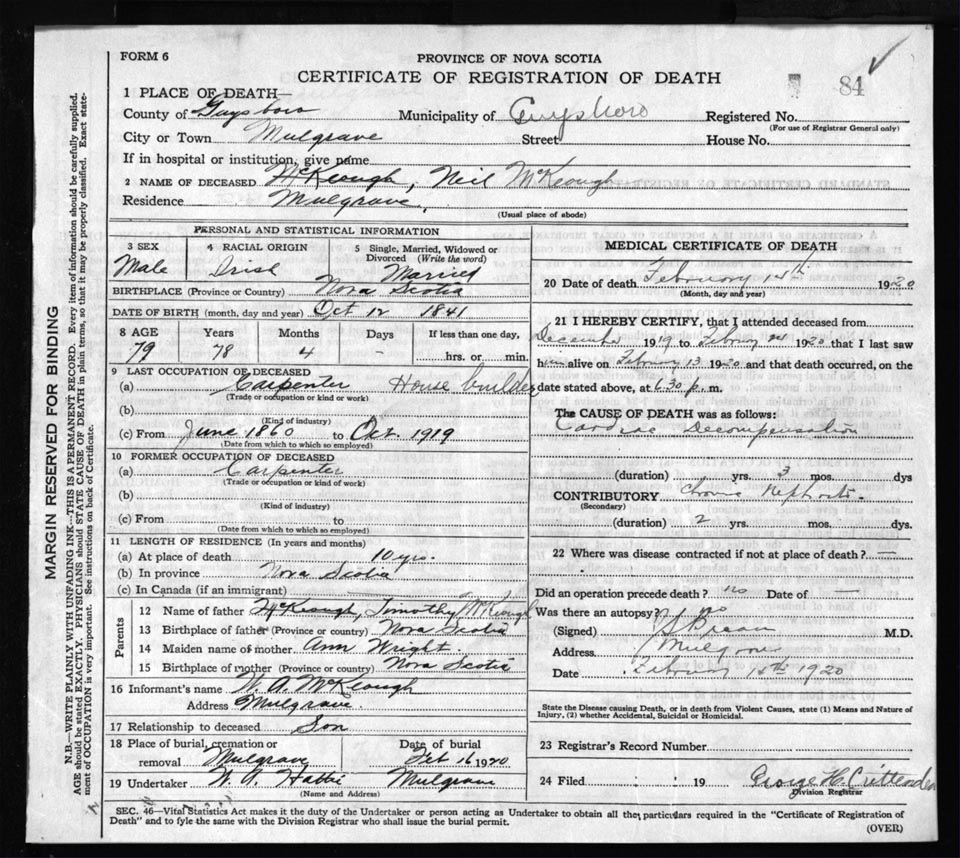 FORM 6
PROVINCE OF NOVA SCOTIA
CERTIFICATE OF REGISTRATION OF DEATH
84
1 PLACE OF DEATH—
County of Guysboro Municipality of Guysboro Registered No.
(For use of Registrar General only)
City or Town Mulgrave Street House No.
If in hospital or institution, give name
2 NAME OF DECEASED McKeough, Neil McKeough
Residence Mulgrave,
(Usual place of abode)
PERSONAL AND STATISTICAL INFORMATION
3 SEX 4 RACIAL ORIGIN 5 Single, Married, Widowed or Divorced (Write the word)
Male Irish Married
BIRTHPLACE (Province or Country) Nova Scotia
DATE OF BIRTH (month, day and year) Oct 12 1841
8 AGE Years Months Days If less than one day,
79 78 4 - hrs. or min.
9 LAST OCCUPATION OF DECEASED
(a) Carpenter House builder
(Trade or occupation or kind of work)
(b)
(Kind of industry)
(c) From June 1860 to Oct. 1919
(Date from which to which so employed)
10 FORMER OCCUPATION OF DECEASED
(a) Carpenter
(Trade or occupation or kind of work)
(b)
(Kind of industry)
(c) From to
(Date from which to which so employed)
11 LENGTH OF RESIDENCE (In years and months)
(a) At place of death 10 yrs.
(b) In province Nova Scotia
(c) In Canada (if an immigrant)
Parents
12 Name of father McKeough, Timothy McKeough
13 Birthplace of father (Province or country) Nova Scotia
14 Maiden name of mother Ann Wright.
15 Birthplace of mother (Province or country) Nova Scotia
16 Informant's name W. A. McKeough
Address Mulgrave.
17 Relationship to deceased Son
18 Place of burial, cremation or removal Mulgrave Date of burial Feb 16 1920
19 Undertaker Mulgrave
(Name and Address)
MEDICAL CERTIFICATE OF DEATH
20 Date of death February 14th 1920
(Month, day and year)
21 I HEREBY CERTIFY, that I attended deceased from
December 1919 to February 1920 that I last saw
him alive on February 13 1920 and that death occurred, on the
date stated above, at 6.30 p. m.
The CAUSE OF DEATH was as follows:
Cardiac Decompensation
(duration) yrs. 3 mos. dys
CONTRIBUTORY Chronic Nephritis.
(Secondary)
(duration) 2 yrs. mos. dys.
22 Where was disease contracted if not at place of death? —
Did an operation precede death? no Date of —
Was there an autopsy? no
(Signed) M.D.
Address Mulgrave
Date February 1920
State the Disease causing Death, or in death from Violent Causes, state (1) Means and Nature of
Injury, (2) whether Accidental, Suicidal or Homicidal.
23 Registrar's Record Number
24 Filed 19 George H. Crittenden
Division Registrar
SEC. 46—Vital Statistics Act makes it the duty of the Undertaker or person acting as Undertaker to obtain all the particulars required in the "Certificate of Registration of
Death" and to fyle the same with the Division Registrar who shall issue the burial permit.
(OVER)
MARGIN RESERVED FOR BINDING
N.B.—WRITE PLAINLY WITH UNFADING INK—THIS IS A PERMANENT RECORD. Every item of information should be carefully supplied.
AGE should be stated EXACTLY. PHYSICIANS should STATE CAUSE OF DEATH in plain terms, so that it may be properly classified. Exact state-
ment of OCCUPATION is very important. See instructions on back of Certificate.